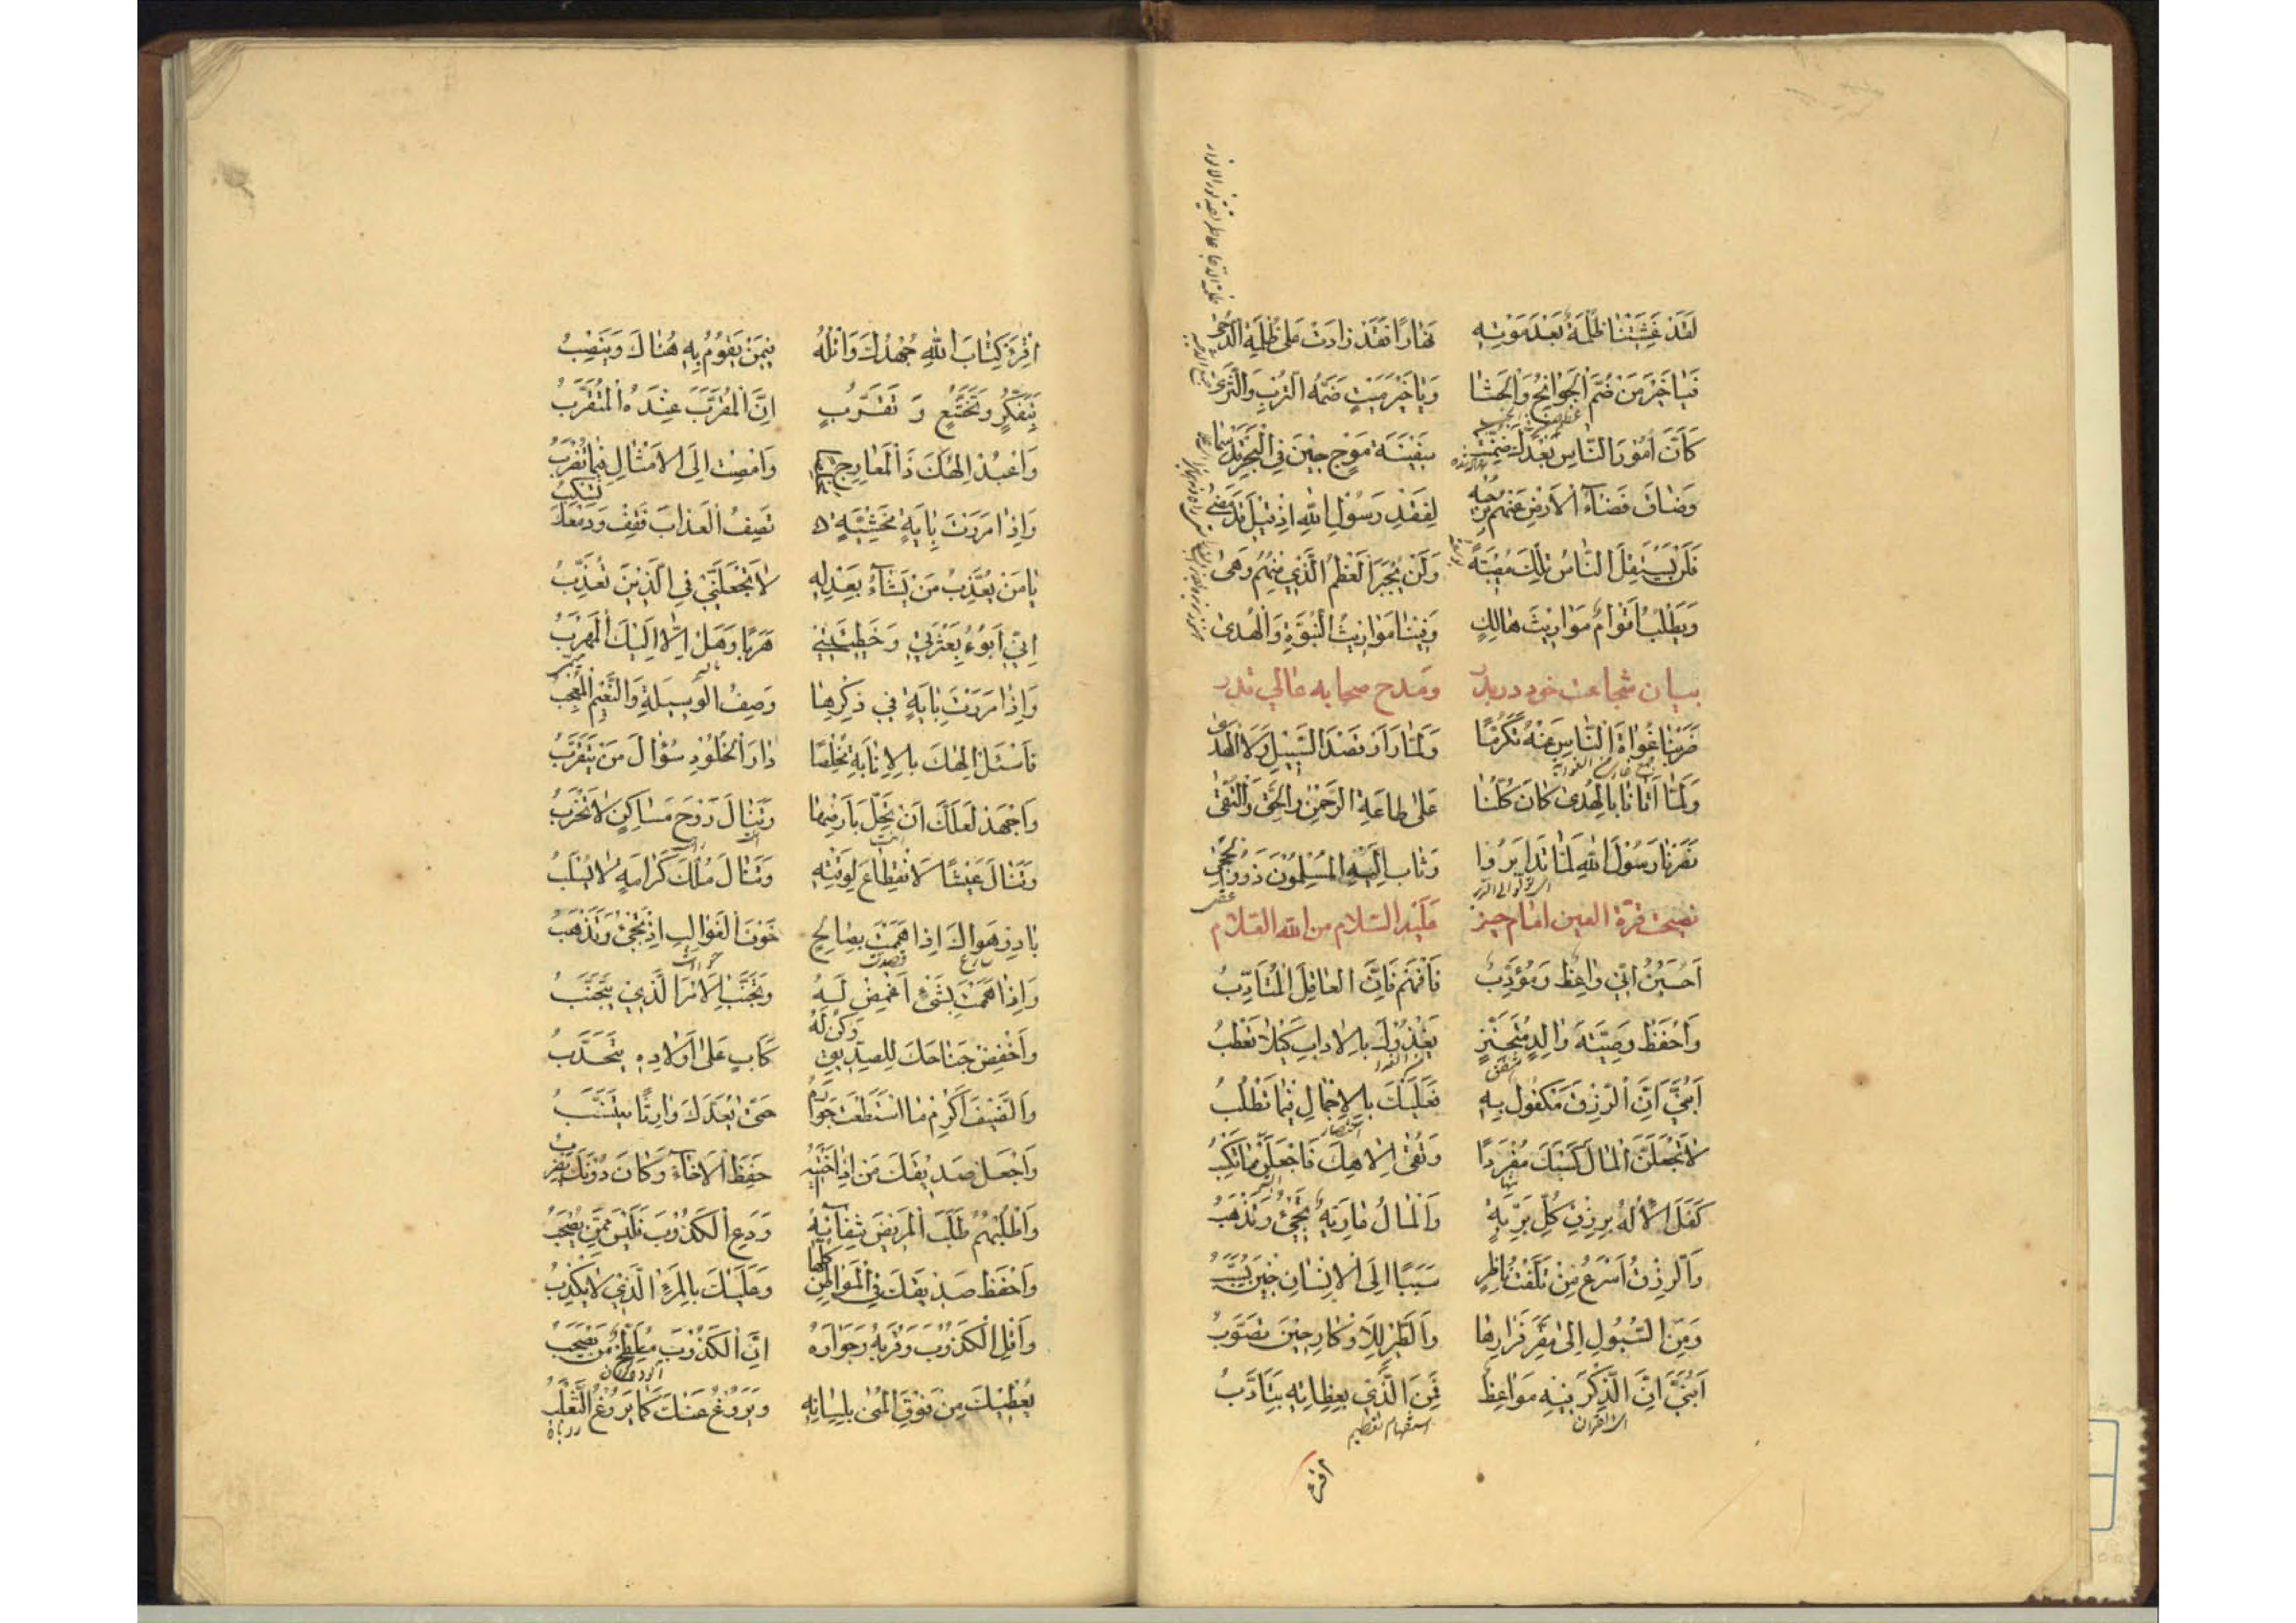 لَقَدْ غَشِيَتْنَا ظُلْمَةٌ بَعْدَ مَوْتِهِ نَهَارًا فَقَدْ زَادَتْ عَلَى ظُلْمَةِ الدُّجَى
فَيَا خَيْرَ مَنْ ضَمَّ الْجَوَانِحُ وَالْحَشَا وَيَا خَيْرَ مَيْتٍ ضَمَّهُ التُّرْبُ وَالثَّرَى
كَأَنَّ أُمُورَ النَّاسِ بَعْدَكَ ضُمِّنَتْ سَفِينَةَ مَوْجٍ حِينَ فِي الْبَحْرِ قَدْ سَمَا
وَضَاقَ فَضَاءُ الْأَرْضِ عَنْهُمْ بِرُحْبِهِ لِفَقْدِ رَسُولِ اللهِ إِذْ قِيلَ قَدْ مَضَى
فَلَنْ يَسْتَقِلَّ النَّاسُ تِلْكَ مُصِيبَةً وَلَنْ يُجْبَرَ الْعَظْمُ الَّذِي مِنْهُمُ وَهَى
وَيَطْلُبُ أَقْوَامٌ مَوَارِيثَ هَالِكٍ وَفِينَا مَوَارِيثُ النُّبُوَّةِ وَالْهُدَى
بيان شجاعت خود در بدر ومدح صحابه عالي قدر
ضَرَبْنَا غُوَاةَ النَّاسِ عَنْهُ تَكَرُّمًا وَلَمَّا رَأَوْا قَصْدَ السَّبِيلِ وَلَا الْهُدَى
وَلَمَّا أَتَانَا بِالْهُدَى كَانَ كُلُّنَا عَلَى طَاعَةِ الرَّحْمٰنِ وَالْحَقِّ وَالتُّقَى
نَصَرْنَا رَسُولَ اللهِ لَمَّا تَدَابَرُوا وَثَابَ إِلَيْهِ الْمُسْلِمُونَ ذَوُو الْحِجَى
نصيحت قرة العين امام عليه السلام من الله العلام
أَحُسَيْنُ إِنِّي وَاعِظٌ وَمُؤَدِّبٌ فَافْهَمْ فَإِنَّ الْعَاقِلَ الْمُتَأَدِّبُ
وَاحْفَظْ وَصِيَّةَ وَالِدٍ مُتَحَنِّنٍ يَغْذُوكَ بِالْآدَابِ كَيْلَا تَعْطَبُ
أَبُنَيَّ إِنَّ الرِّزْقَ مَكْفُولٌ بِهِ فَعَلَيْكَ بِالْإِجْمَالِ فِيمَا تَطْلُبُ
لَا تَجْعَلَنَّ الْمَالَ كَسْبَكَ مُفْرَدًا وَتُقَى إِلٰهِكَ فَاجْعَلَنْ مَا تَكْسِبُ
كَفَلَ الْإِلٰهُ بِرِزْقِ كُلِّ بَرِيَّةٍ وَالْمَالُ عَارِيَةٌ تَجِيءُ وَتَذْهَبُ
وَالرِّزْقُ أَسْرَعُ مِنْ تَلَفُّتِ نَاظِرٍ سَبَبًا إِلَى الْإِنْسَانِ حِينَ يُسَبَّبُ
وَمِنَ السُّيُولِ إِلَى مَقَرِّ قَرَارِهَا وَالطَّيْرِ لِلْأَوْكَارِ حِينَ تَصَوَّبُ
أَبُنَيَّ إِنَّ الذِّكْرَ فِيهِ مَوَاعِظُ فَمَنِ الَّذِي بِعِظَاتِهِ يَتَأَدَّبُ
اى القران استفهام تعظيم
اقرء
اقْرَءْ كِتَابَ اللهِ جُهْدَكَ وَاتْلُهُ فِيمَنْ يَقُومُ بِهِ هُنَاكَ وَيَنْصَبُ
بِتَفَكُّرٍ وَتَخَشُّعٍ وَتَقَرُّبٍ إِنَّ الْمُقَرَّبَ عِنْدَهُ الْمُتَقَرِّبُ
وَاعْبُدْ إِلٰهَكَ ذَا الْمَعَارِجِ وَانْصِتْ إِلَى الْأَمْثَالِ فِيمَا تُضْرَبُ
وَإِذَا مَرَرْتَ بِآيَةٍ مَخْشِيَّةٍ تَصِفُ الْعَذَابَ فَقِفْ وَدَمْعُكَ تَسْكُبُ
يَا مَنْ يُعَذِّبُ مَنْ يَشَاءُ بِعَدْلِهِ لَا تَجْعَلَنِّي فِي الَّذِينَ تُعَذِّبُ
إِنِّي أَبُوءُ بِعَثْرَتِي وَخَطِيئَتِي هَرَبًا وَهَلْ إِلَّا إِلَيْكَ الْمَهْرَبُ
وَإِذَا مَرَرْتَ بِآيَةٍ فِي ذِكْرِهَا وَصْفُ الْوَسِيلَةِ وَالنَّعِيمِ الْمُعْجِبُ
فَاسْئَلْ إِلٰهَكَ بِالْإِنَابَةِ مُخْلِصًا دَارَ الْخُلُودِ سُؤَالَ مَنْ يَتَقَرَّبُ
وَاجْهَدْ لَعَلَّكَ أَنْ تَحِلَّ بِأَرْضِهَا وَتَنَالَ رَوْحَ مَسَاكِنَ لَا تَخْرَبُ
وَتَنَالَ عَيْشًا لَا انْقِطَاعَ لِوَقْتِهِ وَتَنَالَ مُلْكَ كَرَامَةٍ لَا يُسْلَبُ
بَادِرْ هَوَاكَ إِذَا هَمَمْتَ بِصَالِحٍ خَوْفَ الْغَوَالِبِ إِذْ تَجِيءُ وَتَذْهَبُ
وَإِذَا هَمَمْتَ بِشَيْءٍ اغْمِضْ لَهُ وَتَجَنَّبِ الْأَمْرَ الَّذِي يُتَجَنَّبُ
وَاخْفِضْ جَنَاحَكَ لِلصَّدِيقِ وَكُنْ لَهُ كَأَبٍ عَلَى أَوْلَادِهِ يَتَحَدَّبُ
وَالضَّيْفَ أَكْرِمْ مَا اسْتَطَعْتَ جِوَارَهُ حَتَّى يَعُدَّكَ وَارِثًا يَتَنَسَّبُ
وَاجْعَلْ صَدِيقَكَ مَنْ إِذَا آخَيْتَهُ حَفِظَ الْإِخَاءَ وَكَانَ دُونَكَ يَضْرِبُ
وَاطْلُبْهُمُ طَلَبَ الْمَرِيضِ شِفَائَهُ وَدَعِ الْكَذُوبَ فَلَيْسَ مِمَّنْ يُصْحَبُ
وَاحْفَظْ صَدِيقَكَ فِي الْمَوَاطِنِ كُلِّهَا وَعَلَيْكَ بِالْمَرْءِ الَّذِي لَا يَكْذِبُ
وَاقْلِ الْكَذُوبَ وَقُرْبَهُ وَجِوَارَهُ إِنَّ الْكَذُوبَ مُلَطِّخٌ مَنْ يَصْحَبُ
يُعْطِيكَ مِنْ فَوْقِ الْمُنَى بِلِسَانِهِ وَيَرُوغُ عَنْكَ كَمَا يَرُوغُ الثَّعْلَبُ
روباه